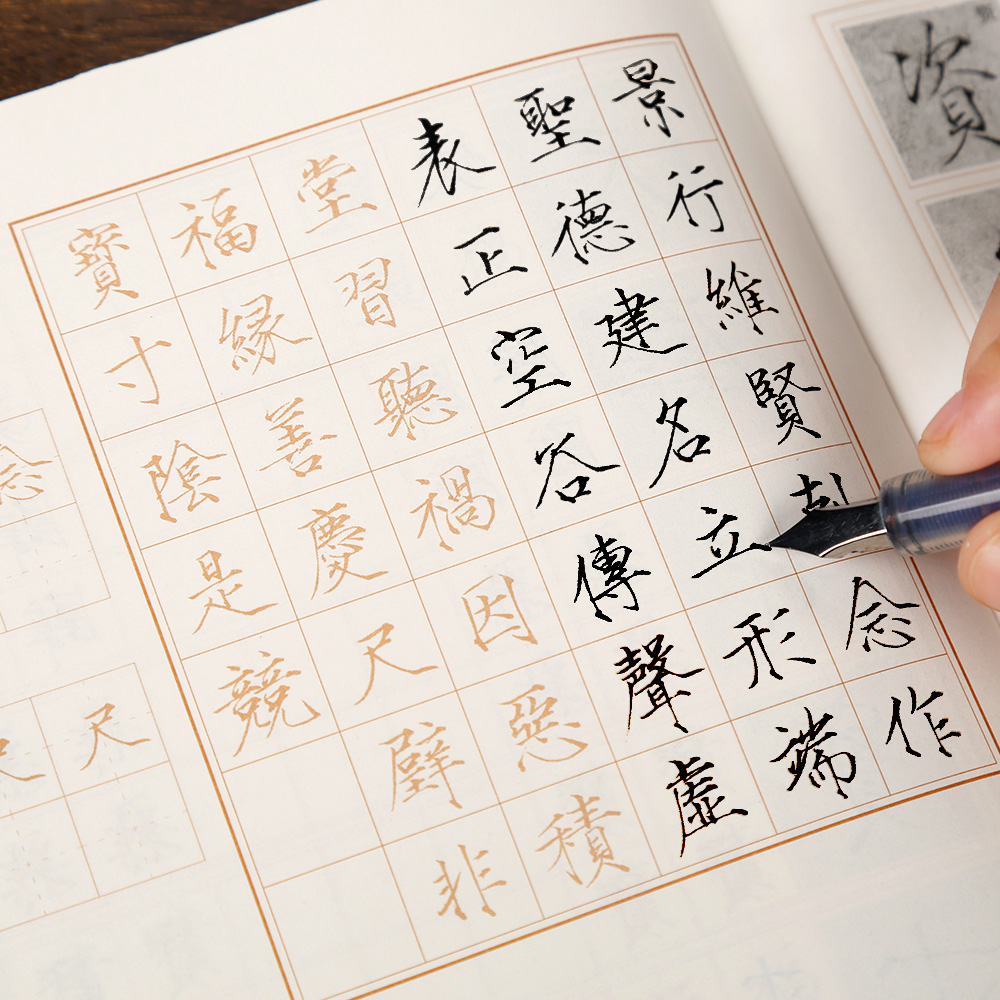 景行維賢剋念作
聖德建名立形端
表正空谷傳聲虛
堂習聽禍因惡積
福緣善慶尺璧非
寶寸陰是競
資
念
尺